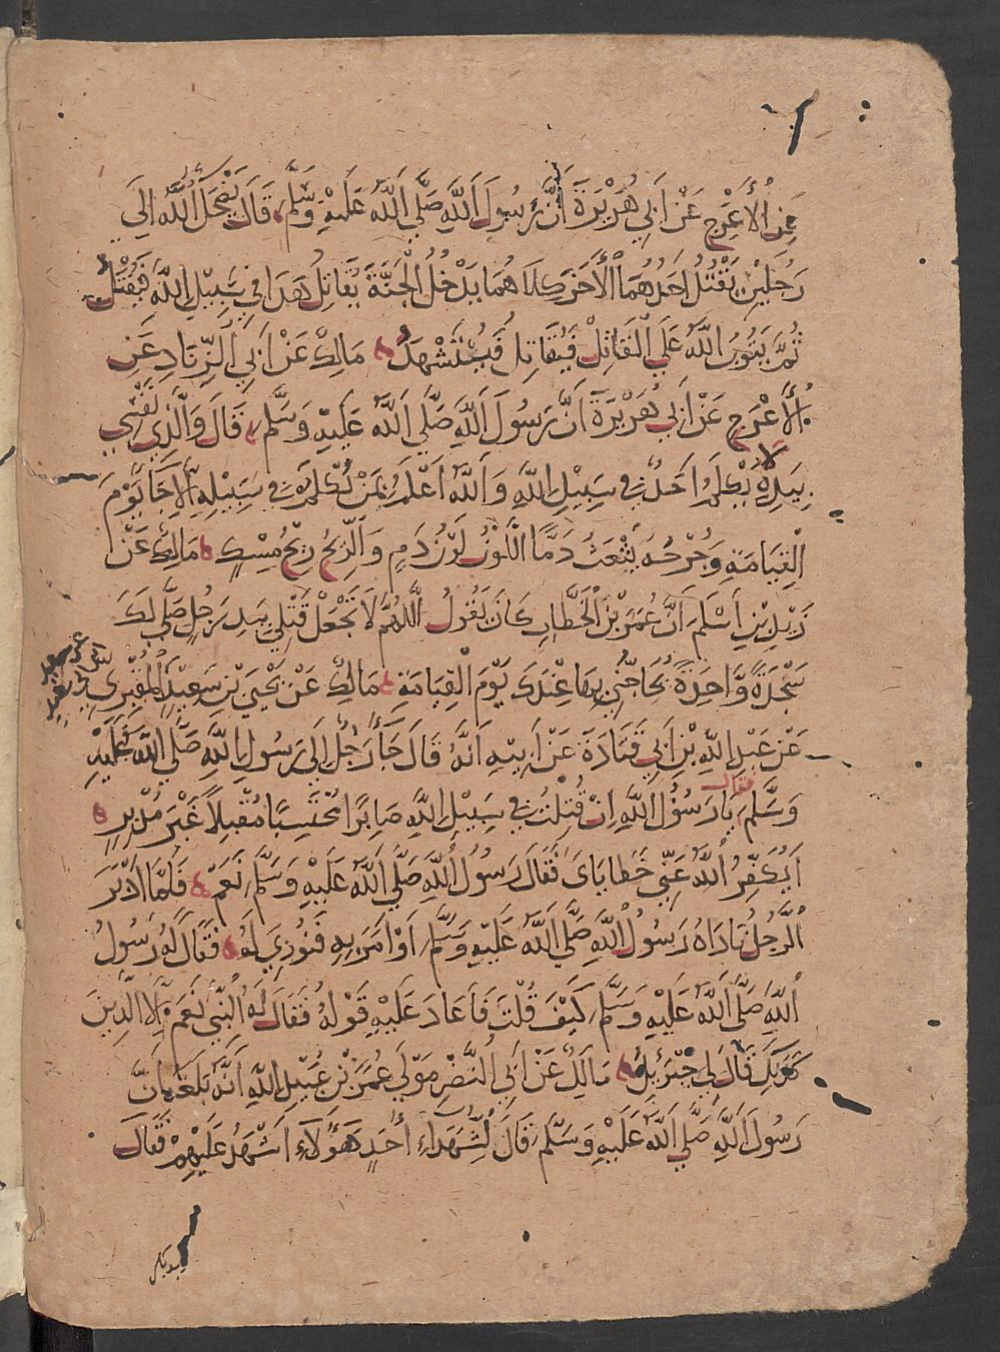 عن الأعرج عن أبي هريرة أن رسول الله صلى الله عليه وسلم قال يضحك الله إلى
رجلين يقتل احدهما الأخر كلاهما يدخل الجنة يقاتل هذا في سبيل الله فيقتل
ثم يتوب الله على القاتل فيقاتل فيستشهد مالك عن أبي الزناد عن
الأعرج عن أبي هريرة أن رسول الله صلى الله عليه وسلم قال والذي نفسي
بيده لا يكلم احد في سبيل الله والله أعلم بمن يكلم في سبيله إلا جا يوم
القيامة وجرحه يثعب دما اللون لون دم والريح ريح مسك مالك عن
زيد بن أسلم أن عمر بن الخطاب كان يقول اللهم لا تجعل قتلي بيد رجل صلى لك
سجدة واحدة يحاجني بها عندك يوم القيامة مالك عن يحيى بن سعيد المقبري
عن سعيد
عن عبد الله بن أبي قتادة عن أبيه أنه قال جا رجل إلى رسول الله صلى الله عليه
وسلم فقال يا رسول الله إن قتلت في سبيل الله صابرا محتسبا مقبلا غير مدبر
أيكفر الله عني خطاياى فقال رسول الله صلى الله عليه وسلم نعم فلما أدبر
الرجل ناداه رسول الله صلى الله عليه وسلم أو أمر به فنودي له فقال له رسول
الله صلى الله عليه وسلم كيف قلت فأعاد عليه قوله فقال له النبي نعم إلا الدين
كذلك قال لي جبريل مالك عن أبي النضر مولى عمر بن عبيد الله أنه بلغه أن
رسول الله صلى الله عليه وسلم قال لشهداء أحد هؤلاء أشهد عليهم فقال